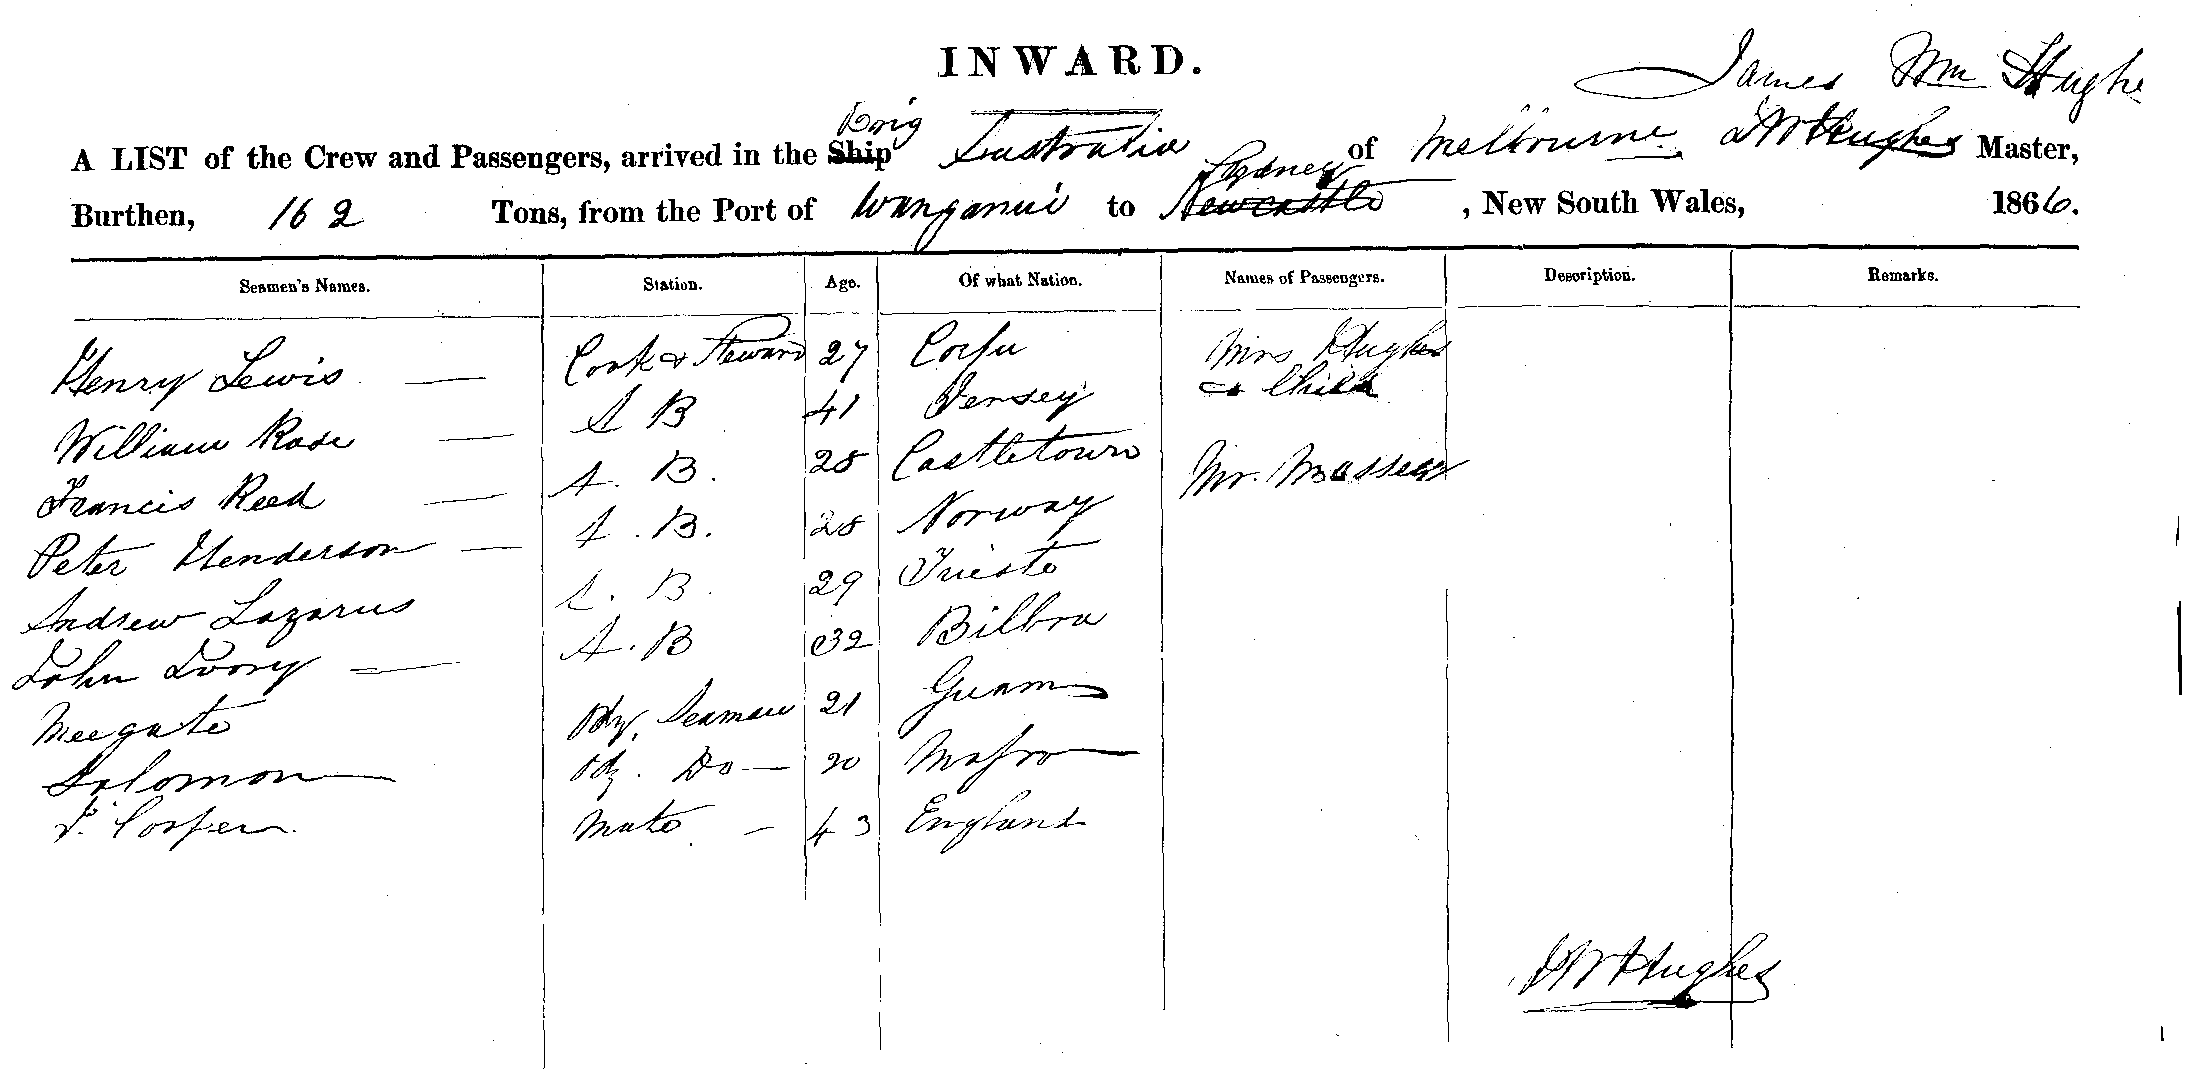 INWARD.
James Wm Hughe
Brig
A LIST of the Crew and Passengers, arrived in the Ship Australia of Melbourne J W Hughes Master,
Sydney
Burthen, 162 Tons, from the Port of Wanganui to Newcastle , New South Wales, 1866.
Seamen's Names. Station. Age. Of what Nation. Names of Passengers. Description. Remarks.
Henry Lewis — Cook & Steward 27 Corfu Mrs Hughes
& Child
William Rose — A B 41 Jersey
Francis Reed — A. B. 28 Castletown Mr.
Peter Henderson — A. B. 28 Norway
Andrew Lazarus A. B. 29 Trieste
John Ivory — A. B 32 Bilboa
Meegate Ody. Seaman 21 Guam
Solomon Ody. Do — 20
J. Cooper. Mate. — 43 England
J W Hughes